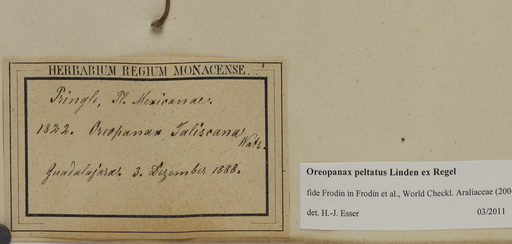 HERBARIUM REGIUM MONACENSE.
Pringle, Pl. Mexicanae.
1822. Oreopanax Taliscana
Wats.
Guadalajara. 3. Dezember 1888.
Oreopanax peltatus Linden ex Regel
fide Frodin in Frodin et al., World Checkl. Araliaceae (200
det. H.-J. Esser 03/2011